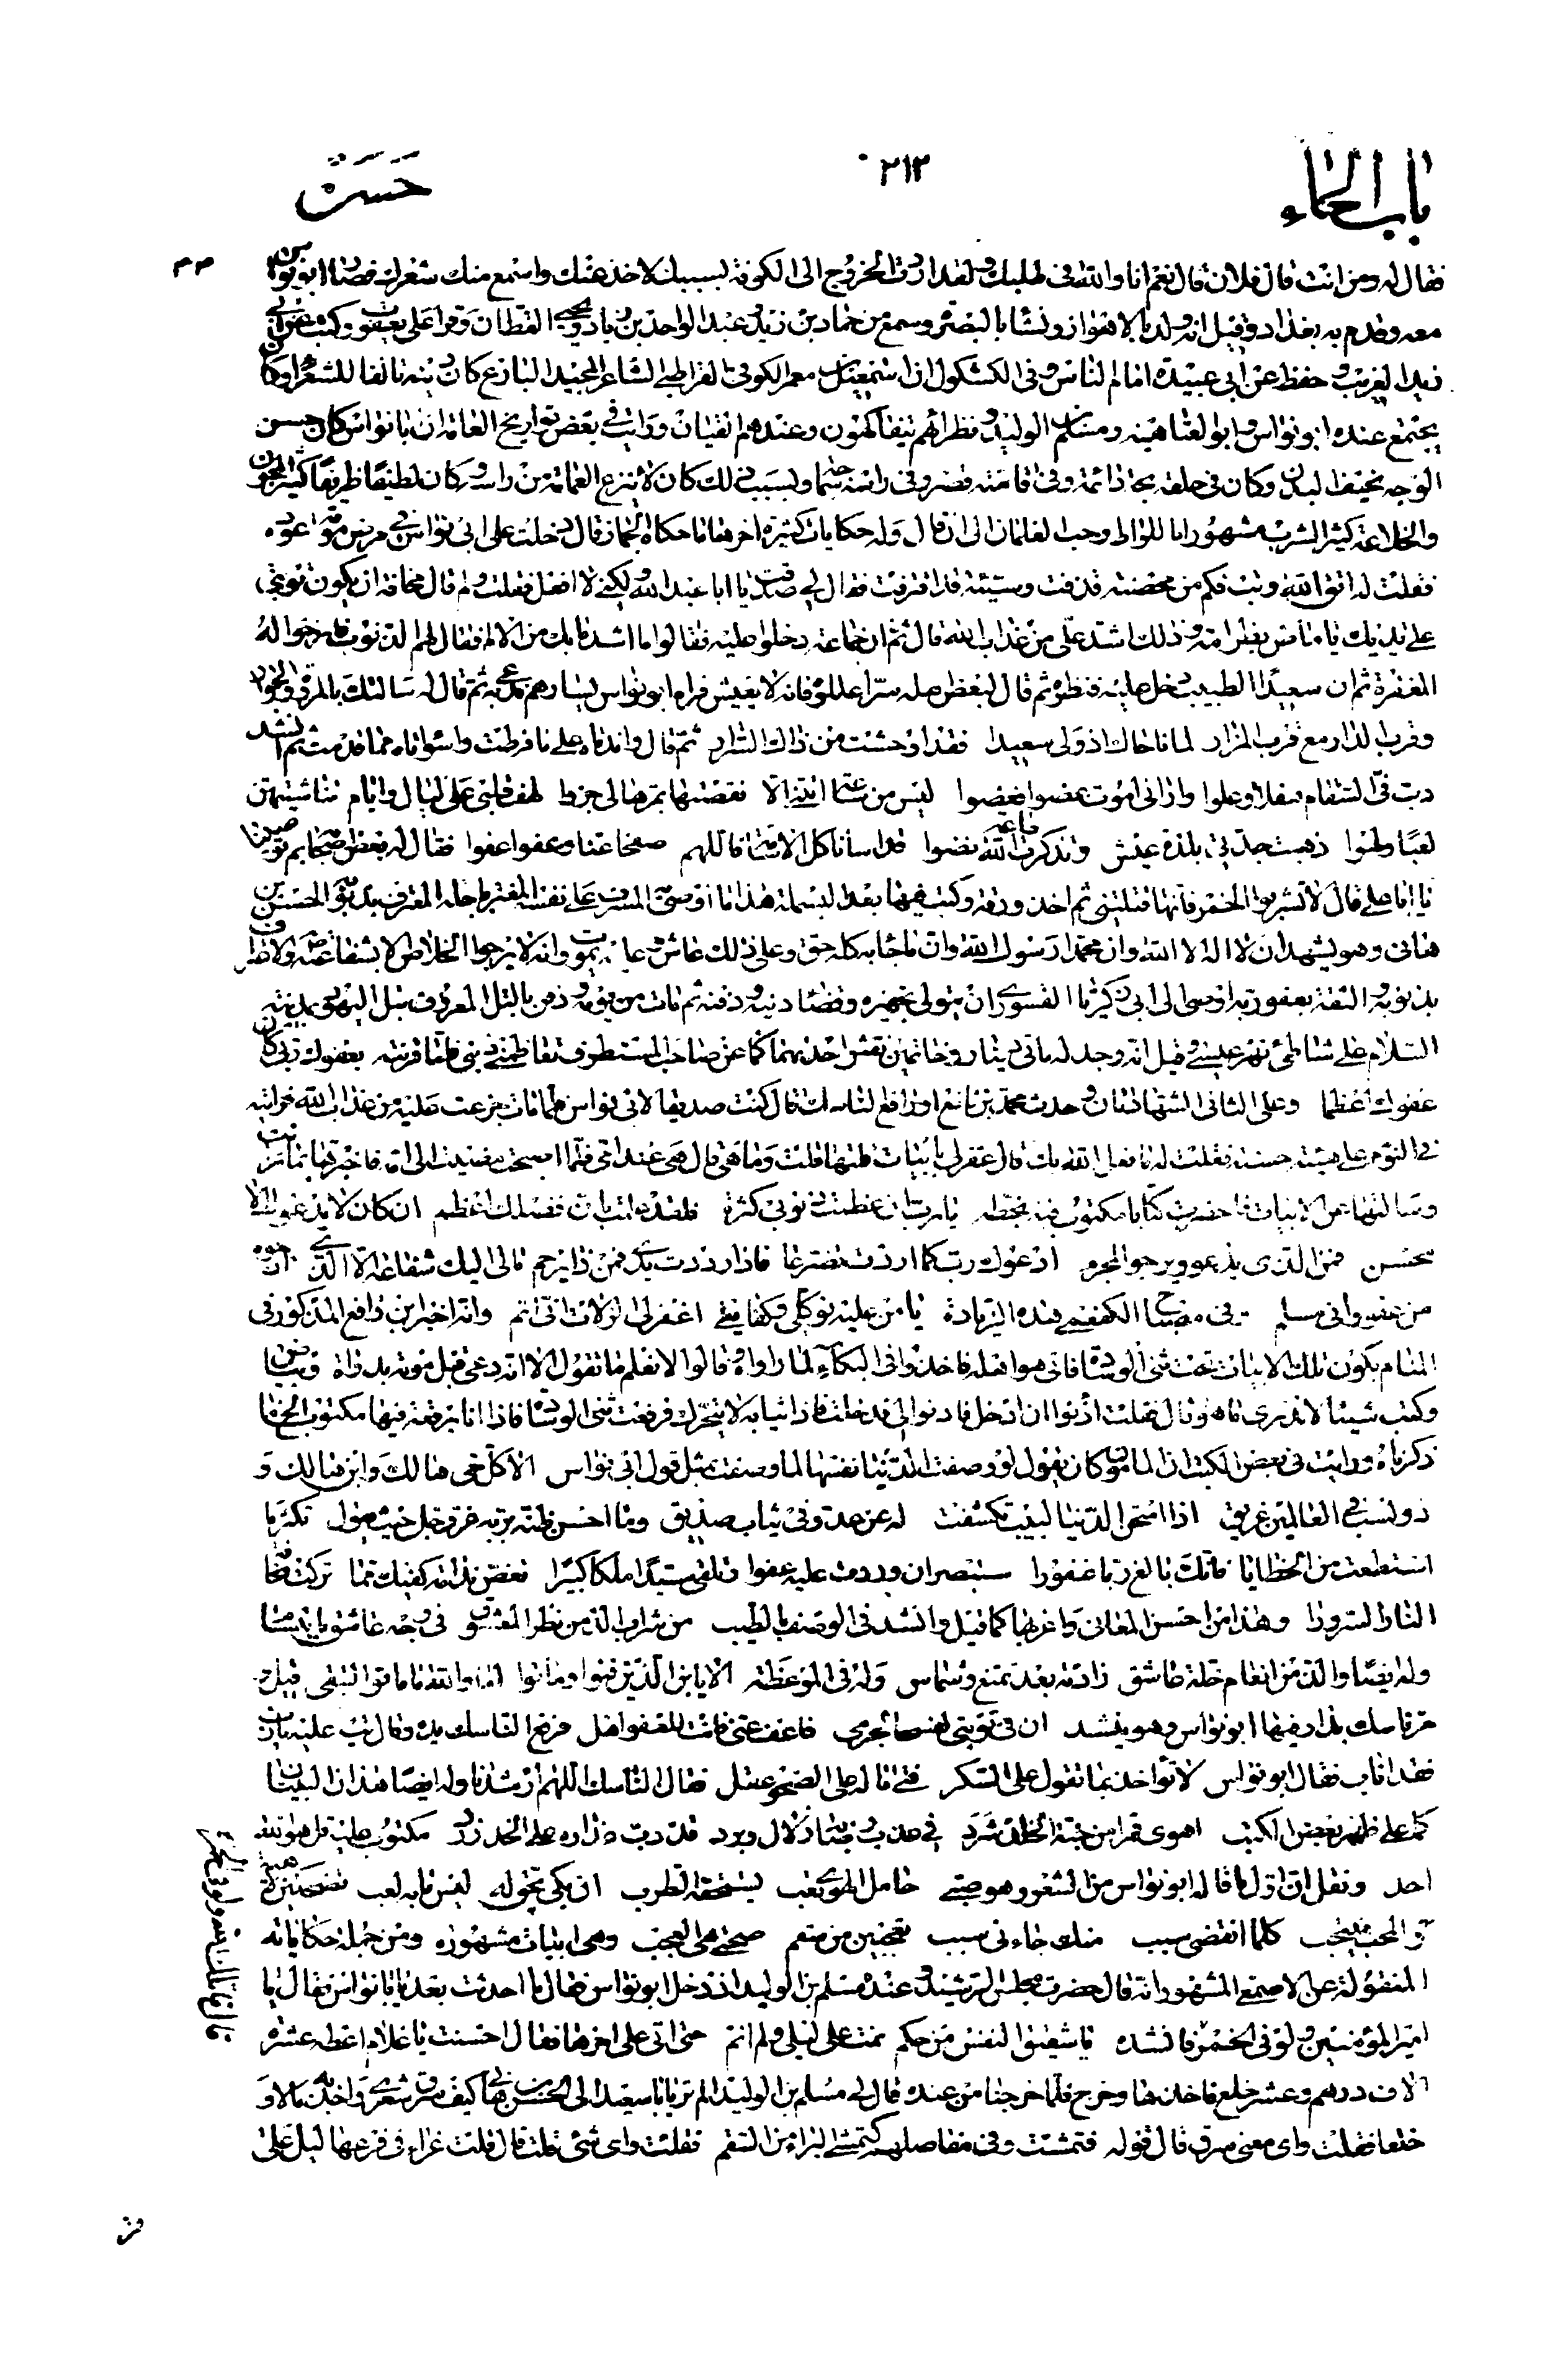 باب الحاء
٢١٢
حسن
فقال له ومن انت قال فلان قال نعم انا والله فى طلبك ولقد اردت الخروج الى الكوفة بسببك لاخذ عنك واسمع منك شعرك فصار ابو نواس
معه وقدم به بغداد وقيل انه ولد بالاهواز ونشا بالبصرة وسمع من حماد بن زيد وعبد الواحد بن زياد ويحيى القطان وقرا على يعقوب وكتب عن ابى
زيد الغريب وحفظ عن ابى عبيدة امام الناس وفى الكشكول ان اسمعيل بن معمر الكوفى القراطيسى الشاعر المجيد البارع كان بيته مالفا للشعراء وكان
يجتمع عنده ابو نواس وابو العتاهية ومسلم بن الوليد ونظرائهم يتفاكهون وعندهم القيان ورايت فى بعض تواريخ العامة ان ابا نواس كان حسن
الوجه نحيف البدن وكان فى حلقه بحة دائمة وفى قامته قصر وفى راسه وبسبب ذلك كان لا ينزع العمامة من راسه وكان لطيفا ظريفا كثير المجون
والخلاعة كثير الشرب مشهورا باللواط وحب الغلمان الى ان قال وله حكايات كثيرة اخرها ما حكاه الجماز قال دخلت على ابى نواس فى مرض موته اعوده
فقلت له اتق الله وتب فكم من محصنة قذفت وسيئة قد اقترفت فقال لى صدقت يا ابا عبد الله ولكنى لا افعل فقلت ولم قال مخافة ان يكون توبتى
على يديك يا وذلك اشد على من عذاب الله قال ثم ان جماعة دخلوا عليه فقالوا ما اشد ما بك من الالم فقال لهم الذنوب فارجوا له
المغفرة ثم ان سعيدا الطبيب دخل عليه فنظره ثم قال لبعض اهله سرا عللوه فانه لا يعيش فراه ابو نواس يسارهم فدعى به ثم قال له سالتك بالمودة والجوار
وقرب الدار مع قرب المزار لما ناجاك اذ ولى سعيدا فقد اوحشت من ذاك السرار ثم قال واندماه على ما فرطت واسواتاه مما قدمت ثم انشد
دب فى السقام سفلا وعلوا وارانى اموت عضوا فعضوا ليس من ساعة اتتنى الا نقصتنى بمرها لى جزوا لهف قلبى على ليال وايام تناسيتهن
لعبا ولهوا ذهبت جدتى بلذة عيش وتذكرت طاعة الله نضوا قد اسانا كل الاسائة فاللهم صفحا عنا وعفوا عفوا فقال له بعض اصحابه بم توصينا
يا ابا على قال لا تشربوا الخمر فانها قتلتنى ثم اخذ ورقة وكتب فيها بعد البسملة هذا ما اوصى المسرف على نفسه المغتر باجله المعترف بذنوبه الحسن بن
هانى وهو يشهد ان لا اله الا الله وان محمدا رسول الله وان ما جاء به كله حق وعلى ذلك عاش وعليه يموت وانه لا يرجوا الخلاص الا بشفاعته والاقرار
بذنوبه والثقة بعفو ربه اوصى الى ابى زكريا ان يتولى تجهيزه وقضاء دينه ودفنه ثم مات من يومه ودفن بالتل المعروف بتل اليهود بمدينة
السلام على شاطئ نهر عيسى وقيل انه وجد له ماتى دينار وخاتمين نقش احدهما كما عن صاحب المستطرف تعاظمنى ذنبى فلما قرنته بعفوك ربى كان
عفوك اعظما وعلى الثانى الشهادتان وحدث محمد بن نافع او رافع الناسك قال كنت صديقا لابى نواس فلما مات جزعت عليه من عذاب الله فرايته
فى النوم على هيئة حسنة فقلت له ما فعل الله بك قال غفر لى بابيات قلتها قلت وما هى قال هى عند امى فلما اصبحت مضيت الى امه فاخبرتها بما رايت
وسالتها عن الابيات فاحضرت كتابا مكتوب فيه بخطه يا رب ان عظمت ذنوبى كثرة فلقد علمت بان فضلك اعظم ان كان لا يدعوك الا
محسن فمن الذى يدعو ويرجو المجرم ادعوك رب كما اردت تضرعا فاذا رددت يدى فمن ذا يرحم مالى اليك شفاعة الا الذى
من عفو وانى مسلم وفى مصباح الكفعمى هذه الزيادة يا من عليه توكلى وكفايتى اغفر لى الزلات انى اثم وانه اخبر ابن رافع المذكور فى
المنام بكون تلك الابيات تحت ثنى الوسادة فاتى هو اهله فاخذوا فى البكاء لما راواه قالوا لا نعلم ما تقول الا انه دعى قبل موته بدواة وبياض
وكتب شيئا لا ندرى ما هو قال فقلت اذنوا ان ادخل فاذنوا لى فدخلت فاذا ثيابه لا تتحرك فرفعت ثنى الوسادة فاذا انا برقعة فيها مكتوب الخ ما
ذكرناه ورايت فى بعض الكتب ان المامون كان يقول لو وصفت الدنيا نفسها لما وصفت بمثل قول ابى نواس الا كل حى هالك وابن هالك و
ذو نسب فى العالمين غريق اذا امتحن الدنيا لبيب تكشفت له عن عدو فى ثياب صديق وما احسن ظنه بربه عز وجل حيث يقول تكثر ما
استطعت من الخطايا فانك بالغ ربا غفورا ستبصر ان وردت عليه عفوا وتلقى سيدا ملكا كبيرا تعض ندامة كفيك مما تركت مخافة
النار السرورا وهذا من احسن المعانى واغربها كما قيل وانشد فى الوصف بالطيب من شراب الذ من نظر المعشوق فى وجه عاشق بابتسام
وله ايضا والذ من انعام خلة عاشق زارته بعد تمنع وشماس وله فى الموعظة الا يابن الذين فنوا وماتوا اما والله ما ماتوا لتبقى قيل و
مر ناسك بدار فيها ابو نواس وهو ينشد ان فى توبتى لفسخا لجرمى فاعف عنى فانت للعفو اهل فرفع الناسك يده وقال تب عليه يا رب
فقد اناب فقال ابو نواس لا تؤاخذ بما تقول على السكر فتى ما له على الصحو عقل فقال الناسك اللهم ارشدنا وله ايضا هذان البيتان
كما على ظهر بعض الكتب اهوى قمرا من جنة الخلد شرد فى عذب رضابه زلال وبرد قد دب عذاره على الخد زرد مكتوب عليه قل هو الله
احد ونقل ان اول ما قاله ابو نواس من الشعر وهو صبى حامل الهوى تعب يستخفه الطرب ان بكى يحق له ليس ما به لعب تضحكين لاهية
والمحب ينتحب كلما انقضى سبب منك جاءنى سبب تعجبين من سقمى صحتى هى العجب وهى ابيات مشهورة ومن جملة حكاياته
المنقولة عن الاصمعى المشهور انه قال حضرت مجلس الرشيد وعنده مسلم بن الوليد اذ دخل ابو نواس فقال ما احدثت بعدنا يا ابا نواس فقال يا
امير المؤمنين ولو فى الخمر فانشده يا شقيق النفس من حكم نمت عن ليلى ولم انم حتى اتى على اخرها فقال احسنت يا غلام اعطه عشرة
الاف درهم وعشر خلع فاخذها وخرج فلما خرجنا من عنده قال لى مسلم بن الوليد الم تر يا ابا سعيد الى الحسن بن هانى كيف سرق شعرى واخذ به مالا و
خلعا فقلت واى معنى سرق قال قوله فتمشت فى مفاصلهم كتمشى البرء فى السقم فقلت واى شئ قلت قال قلت غراء فى فرعها ليل على